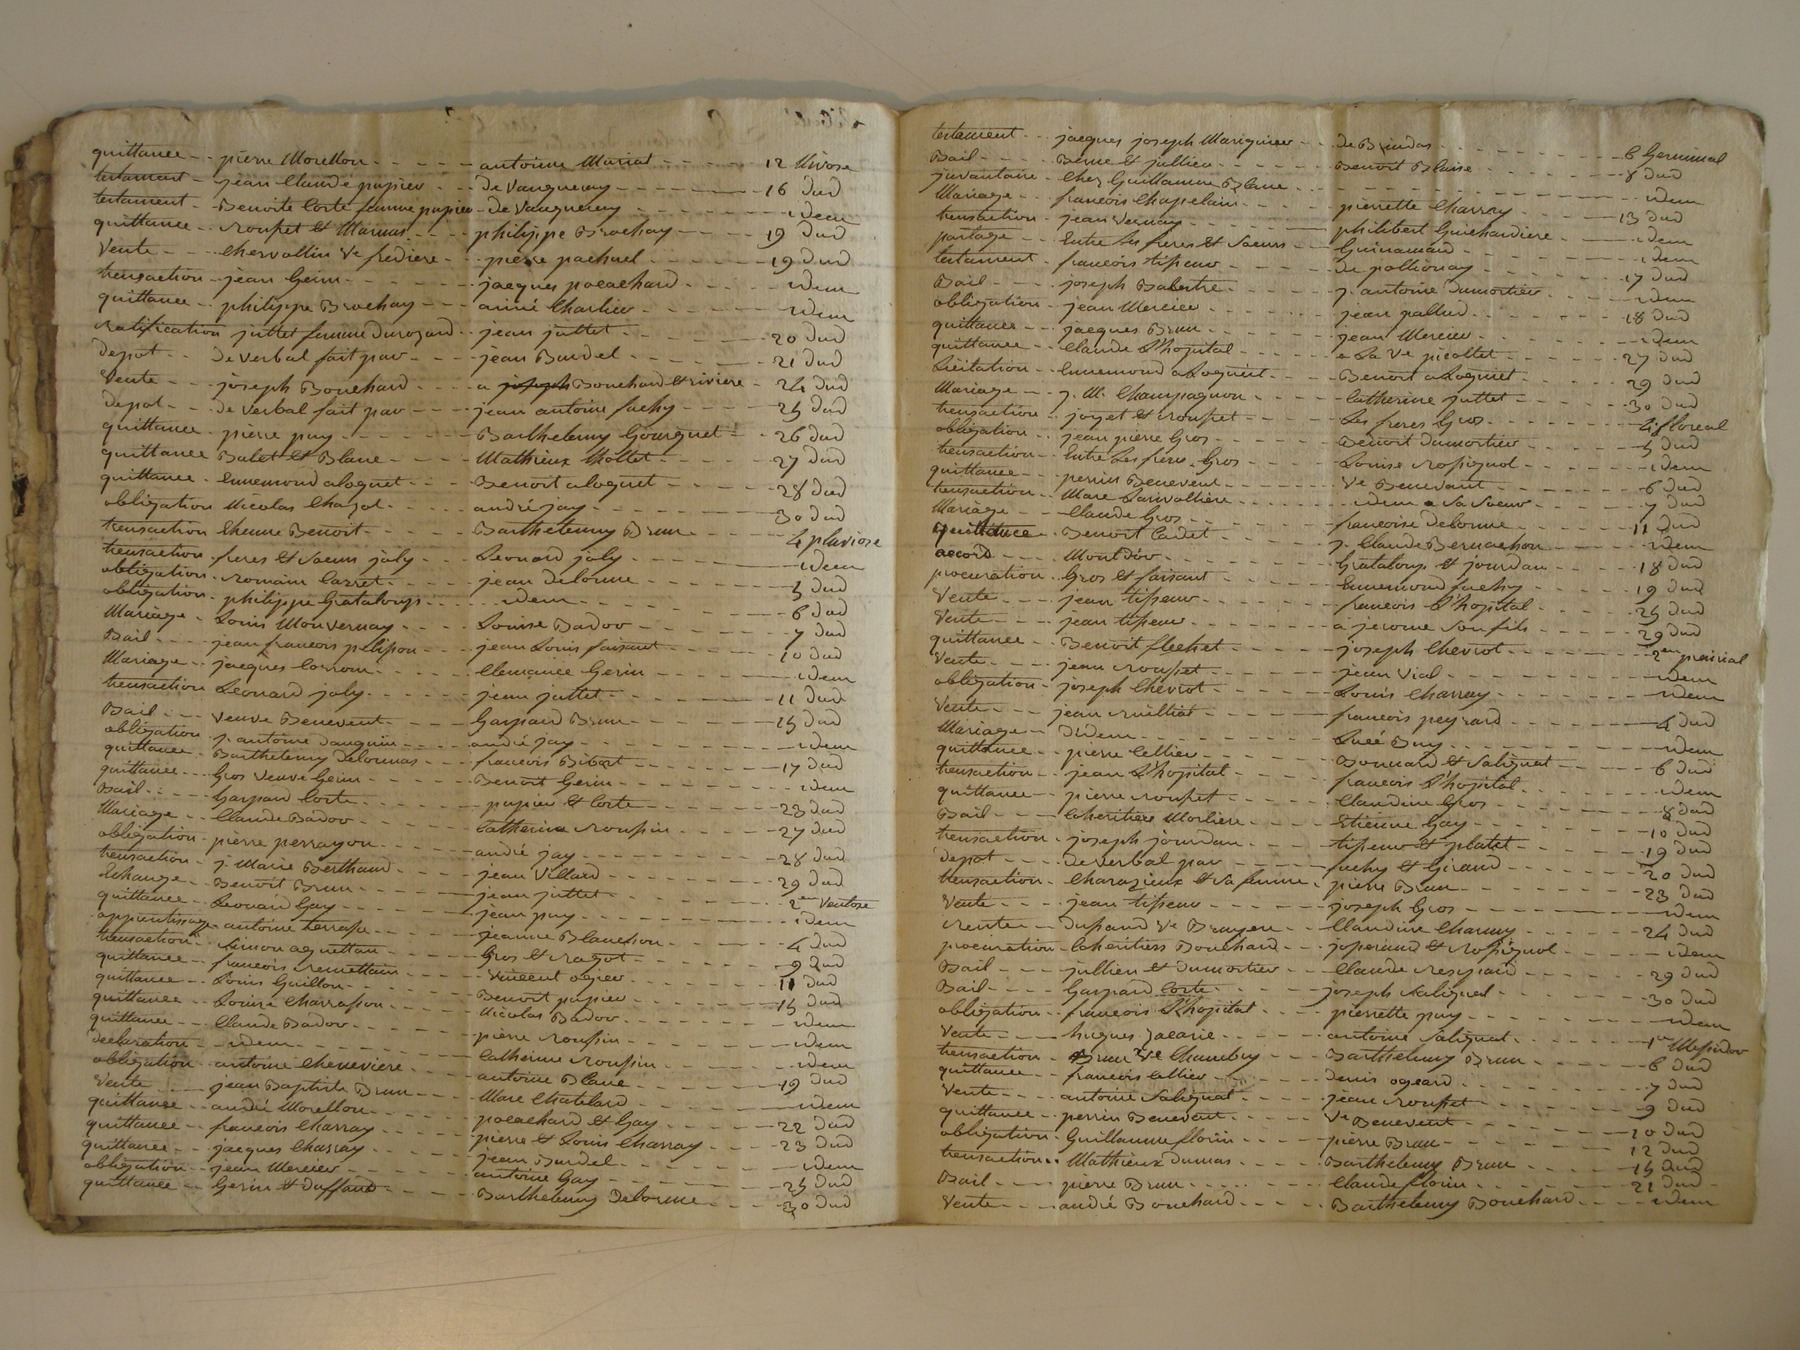 quittance - - pierre Morellon - - - - - antoinne Marial - - - - 12 Nivose
testament - jean Claude pupier - - de Vaugneray - - - - 16 dud
testament - Benoite Corte femme pupier - de Vaugneray - - - - idem
quittance - - roupet et Marnas - - - - philippe Brochay - - - 19 dud
Vente - - - Chervollin Ve frediere - - - pierre pachuel - - - - 19 dud
transaction - jean Gerin - - - - jacques polachard - - - - idem
quittance - - philippe Brochay - - - aimé Charlier - - - - idem
ratification juttet femme Durozard - - jean juttet - - - - 20 dud
depot - - de Verbal fait par - - - - jean Burdel - - - - 21 dud
Vente - - - joseph Bouchard - - - - a joseph Bouchard et riviere - 24 dud
depot - - de Verbal fait par - - - - jean antoine fuchy - - - - 25 dud
quittance - pierre puy - - - - Barthelemy Gourguet - - 26 dud
quittance Balet et Blanc - - - - Mathieux Mollet - - - - 27 dud
quittance - Ennemond aloguet - - - Benoit aloguet - - - - 28 dud
obligation Nicolas Chazot - - - - andré jay - - - - 30 dud
transaction Etienne Benoit - - - - Barthelemy Brun - - - - 4 pluviose
transaction - freres et Soeurs joly - - - Leonard joly - - - - idem
obligation - romain Carret - - - - jean Delorme - - - - 5 dud
obligation - philippe Grataloup - - - idem - - - - 6 dud
Mariage - Louis Monvernay - - - - Louise Badoo - - - - 7 dud
Bail - - - jean francois pelipon - - - jean Louis faisant - - - - 10 dud
Mariage - - jacques Corron - - - - Clemence Gerin - - - - idem
transaction Leonard joly - - - - jean juttet - - - - 11 dud
Bail - - - Veuve Benevent - - - - Gaspard Brun - - - - 15 dud
obligation - j. antoine Dauguin - - - - andré jay - - - - idem
quittance - Barthelemy Delormas - - - francois Bibost - - - - 17 dud
quittance - Gros Veuve Gerin - - - - Benoit Gerin - - - - idem
Bail - - - Gaspard Corte - - - - pupier et Corte - - - - 23 dud
Mariage - Claude Badoo - - - - Catherine roupin - - - - 27 dud
obligation - pierre perrayon - - - - andré jay - - - - 28 dud
transaction - j. Marie Berthaud - - - - jean Villard - - - - 29 dud
Echange - Benoit Brun - - - - jean juttet - - - - 2en Ventose
quittance - Leonard Gay - - - - jean puy - - - - idem
apprentissage - antoine terrasse - - - jeanne Blanchon - - - - 4 dud
transaction - Simon aguettan - - - - Gros et ragot - - - - 9 dud
quittance - francois remettain - - - - Vincent ogier - - - - 11 dud
quittance - Louis Guillon - - - - Benoit pupier - - - - 15 dud
quittance - Louise Charrassion - - - - Nicolas Badoo - - - - idem
quittance - - Claude Badoo - - - - pierre roupin - - - - idem
declaration - idem - - - - Catherine roupin - - - - idem
obligation - antoine Cheneviere - - - antoine Blanc - - - - 19 dud
Vente - - - jean Baptiste Brun - - - Marc Chatelard - - - - idem
quittance - andré Morellon - - - - polachard et Gay - - - - 22 dud
quittance - - francois Charray - - - - pierre et Louis Charray - - - - 23 dud
quittance - - jacques Charray - - - - jean Burdel - - - - idem
obligation - - jean Mercier - - - - antoine Gay - - - - 25 dud
quittance - - Gerin et Duffaud - - - - Barthelemy Delorme - - - - 30 dud
testament - - jacques joseph Mariguier - - de Brindas - - - - 6 Germinal
Bail - - - - Benne et jullien - - - - Benoit Blaise - - - - 8 dud
jnvantaire - Chez Guillaume Blanc - - - - idem
Mariage - - francois Chapelain - - - - pierrette Charray - - - - 13 dud
transaction - jean Vernay - - - - philibert Guichardiere - - idem
partage - - Entre Les freres et Soeurs - - - Guinamand - - - - idem
testament - francois tisseur - - - - de pollionay - - - - 17 dud
Bail - - - joseph Balestre - - - - j. antoine dumortier - - - - idem
obligation - jean Mercier - - - - jean palliod - - - - 18 dud
quittance - - jacques Brun - - - - jean Mercier - - - - idem
quittance - - Claude L'hopital - - - - a La Ve picottet - - - - 27 dud
Licitation - Ennemond aloguet - - - - Benoit aloguet - - - - 29 dud
Mariage - - j. M. Champagnon - - - - Catherine juttet - - - - 30 dud
transaction - joyet et roupet - - - - Les freres Gros - - - - 4 floreal
obligation - jean pierre Gros - - - - Benoit dumortier - - - - 5 dud
transaction - Entre Les freres Gros - - - - Louise rossignol - - - - idem
quittance - - perrin Benevent - - - - Ve Benevant - - - - 6 dud
transaction - Marc Larivolliere - - - - idem a Sa Soeur - - - - 7 dud
Mariage - - Claude Gros - - - - francoise Delorme - - - - 11 dud
quittance - Benoit Cadet - - - - j. Claude Bernachon - - - - idem
accord - - Montdor - - - - Grataloup et jourdan - - - - 18 dud
procuration - Gros et faisant - - - - Ennemond fuchy - - - - 19 dud
Vente - - - jean tisseur - - - - francois L'hopital - - - - 25 dud
Vente - - - jean tisseur - - - - a jerome Son fils - - - - 29 dud
quittance - - Benoit flechet - - - - joseph Cheviot - - - - 2en prairial
Vente - - - jean roupet - - - - jean Vial - - - - idem
obligation - joseph Cheviot - - - - Louis Charray - - - - idem
Vente - - - jean rulliat - - - - francois peyrard - - - - 4 dud
Mariage - Didem - - - - Luée Buy - - - - idem
quittance - - pierre Cellier - - - - Bouchard et Salignat - - - - 6 dud
transaction - jean L'hopital - - - - francois L'hopital - - - - idem
quittance - - pierre roupet - - - - Claudine Gros - - - - 8 dud
Bail - - - Lheritiere Morliere - - - - Etienne Gay - - - - 10 dud
transaction - joseph jourdan - - - - tisseur et platet - - - - 19 dud
depot - - - de Verbal par - - - - fuchy et Giraud - - - - 20 dud
transaction - Charazieux et Sa femme - pierre Brun - - - - 23 dud
Vente - - - jean tisseur - - - - joseph Gros - - - - idem
rente - - - Dussaud Ve Bruyere - - Claudine Charmy - - - - 24 dud
procuration - Lheritiers Bouchard - - - josserand et rossignol - - - - idem
Bail - - - - jullien et dumortier - - - Claude respaud - - - - 29 dud
Bail - - - - Gaspard Corte - - - - joseph Salignat - - - - 30 dud
obligation - francois L'hopital - - - - pierrette puy - - - - idem
Vente - - - hugues Zacarie - - - - antoine Salignat - - - - 1er Messidor
transaction - Brun Ve Chambry - - - Barthelemy Brun - - - - 6 dud
quittance - - francois Cellier - - - - denis ogeard - - - - 7 dud
Vente - - - antoine Salignat - - - - jean roupet - - - - 9 dud
quittance - - perrin Benevent - - - - Ve Benevent - - - - 10 dud
obligation - Guillaume florin - - - - pierre Brun - - - - 12 dud
transaction - Mathieux dumas - - - - Barthelemy Brun - - - - 15 dud
Bail - - - - pierre Brun - - - - Claude florin - - - - 21 dud
Vente - - - andré Bouchard - - - - Barthelemy Bouchard - - - - idem